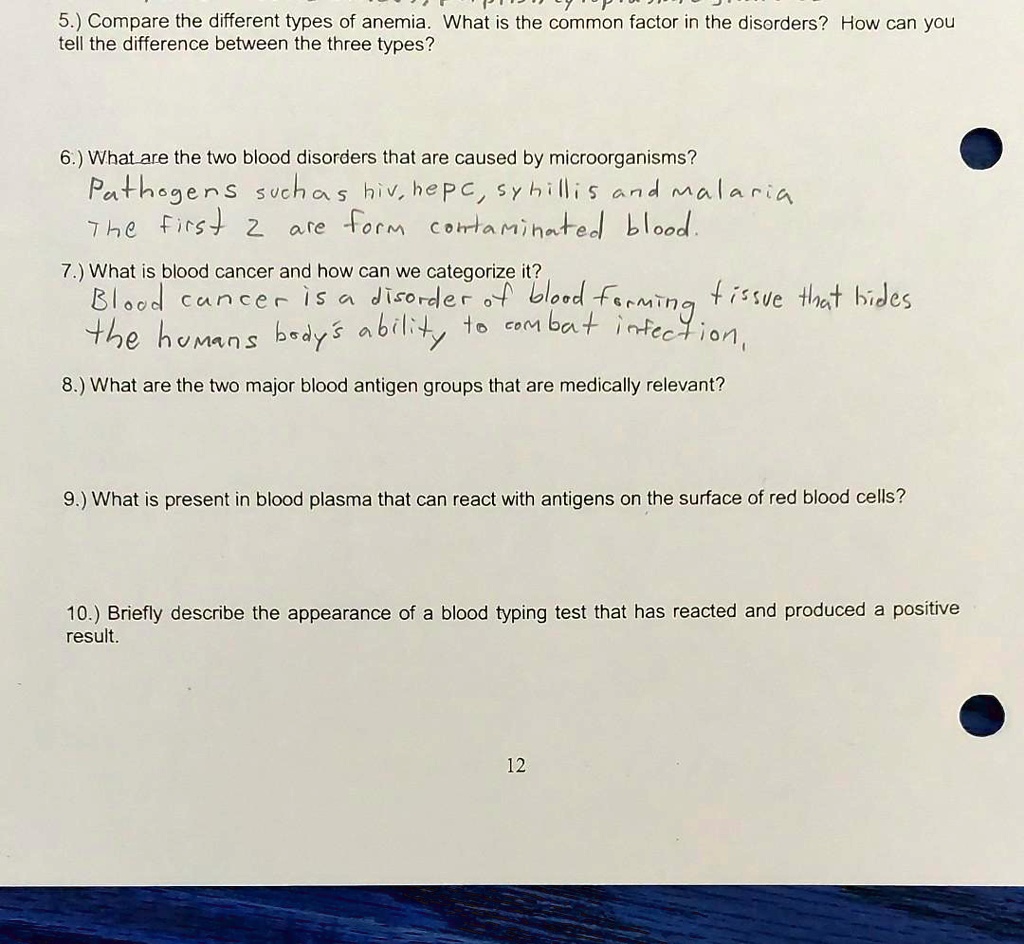 5.) Compare the different types of anemia. What is the common factor in the disorders? How can you
tell the difference between the three types?
6.) What are the two blood disorders that are caused by microorganisms?
Pathogens such as hiv, hepc, syhillis and malaria
The first 2 are form contaminated blood.
7.) What is blood cancer and how can we categorize it?
Blood cancer is a disorder of blood forming tissue that hides
the humans body's ability to combat infection,
8.) What are the two major blood antigen groups that are medically relevant?
9.) What is present in blood plasma that can react with antigens on the surface of red blood cells?
10.) Briefly describe the appearance of a blood typing test that has reacted and produced a positive
result.
12